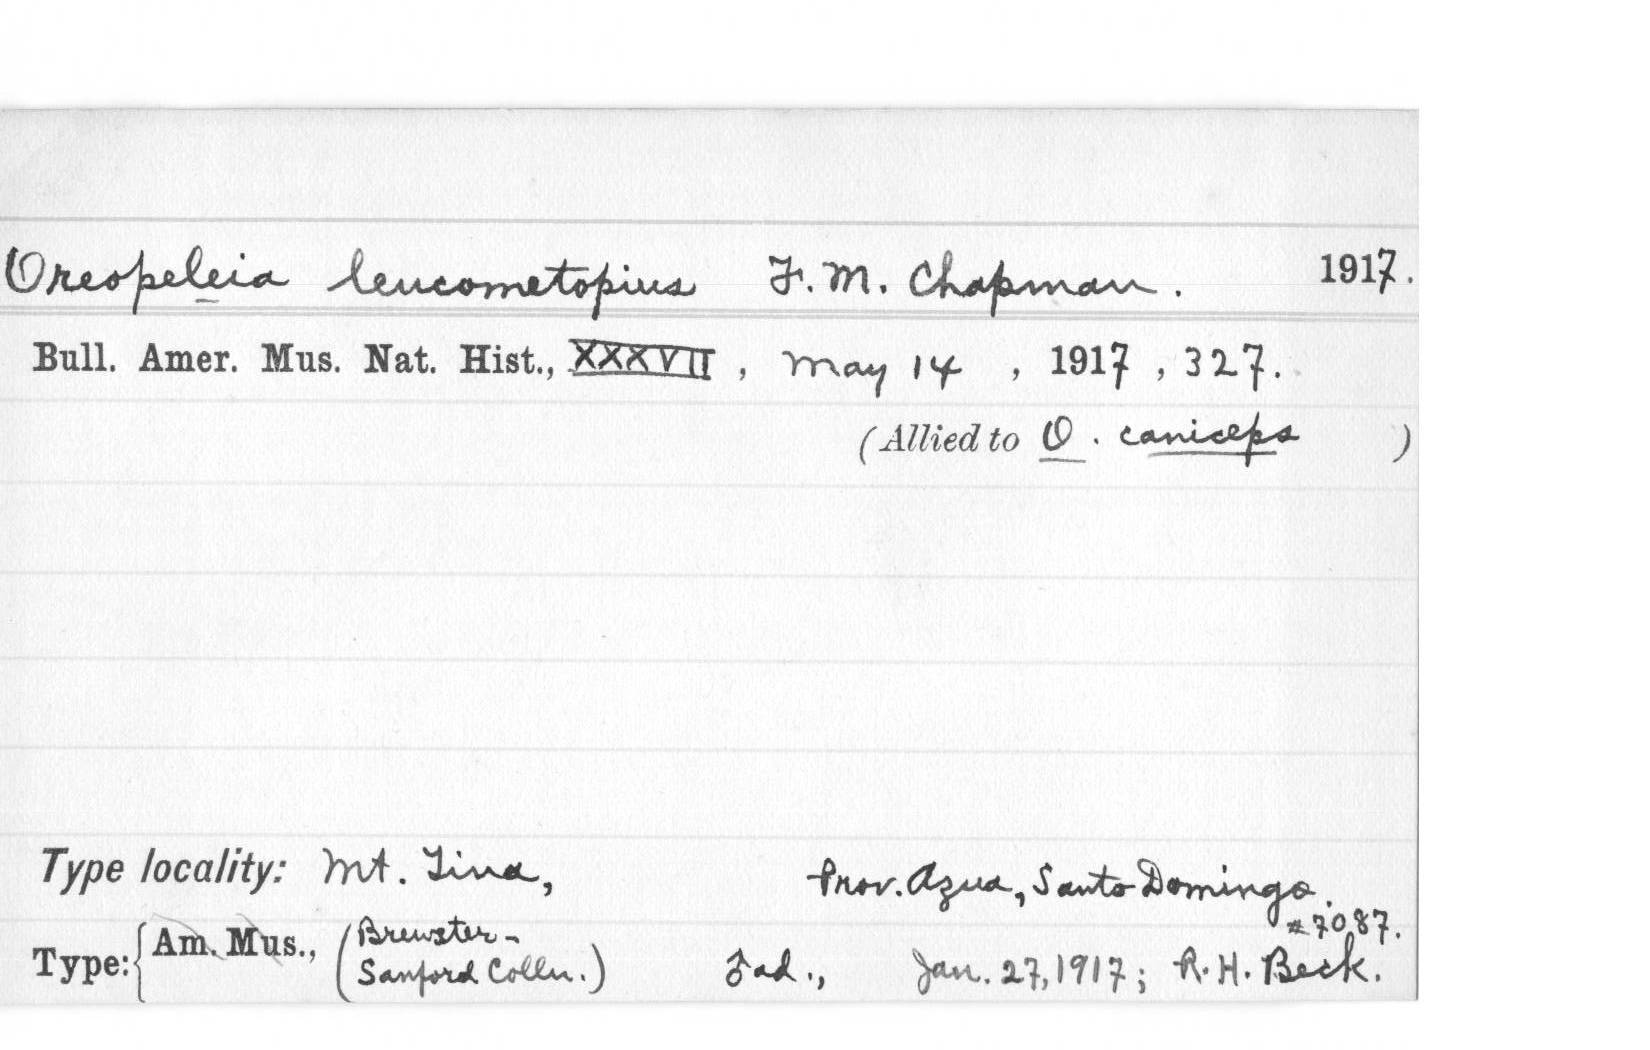 Oreopeleia leucometopius F. M. Chapman. 1917.
Bull. Amer. Mus. Nat. Hist., XXXVII, May 14, 1917, 327.
(Allied to O. caniceps )
Type locality: Mt. Tina, Prov. Azua, Santo Domingo.
#7087.
Type: { Am. Mus., (Brewster-
Sanford Colln.) ♂ ad., Jan. 27, 1917; R. H. Beck.